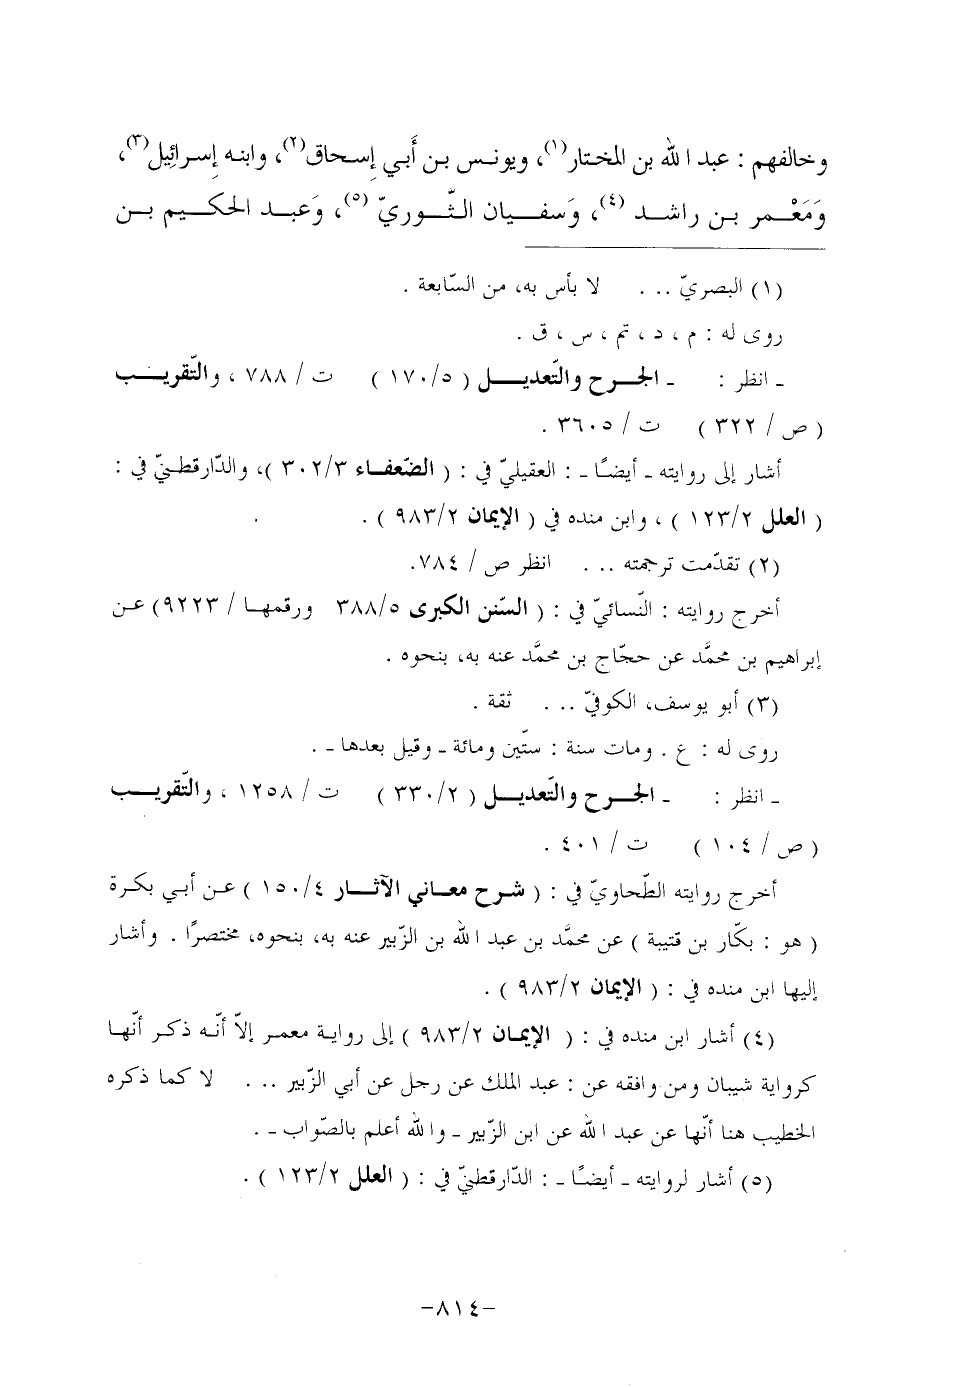 وخالفهم : عبد الله بن المختار(١)، ويونس بن أَبي إسحاق(٢)، وابنه إسرائِيل(٣)،
وَمَعْمر بن راشد (٤)، وَسفيان الثَّوريّ (٥)، وَعبد الحكيم بن
(١) البصريّ ... لا بأس به، من السّابعة .
روى له : م ، د ، تم ، س ، ق .
ـ انظر : ـ الجرح والتّعديل ( ٥/ ١٧٠ ) ت / ٧٨٨ ، والتّقريب
( ص / ٣٢٢ ) ت / ٣٦٠٥ .
أشار إلى روايته ـ أيضًا ـ : العقيليّ في : ( الضّعفاء ٣/ ٣٠٢ )، والدّارقطنيّ في :
( العلل ٢/ ١٢٣ ) ، وابن منده في ( الإيمان ٢/ ٩٨٣ ) .
(٢) تقدّمت ترجمته ... انظر ص / ٧٨٤.
أخرج روايته : النّسائيّ في : ( السّنن الكبرى ٥/ ٣٨٨ ورقمها / ٩٢٢٣) عن
إبراهيم بن محمَّد عن حجّاج بن محمَّد عنه به، بنحوه .
(٣) أبو يوسف، الكوفيّ ... ثقة .
روى له : ع . ومات سنة : ستّين ومائة ـ وقيل بعدها ـ .
ـ انظر : ـ الجرح والتّعديل ( ٢/ ٣٣٠ ) ت / ١٢٥٨ ، والتّقريب
( ص / ١٠٤ ) ت / ٤٠١ .
أخرج روايته الطّحاويّ في : ( شرح معاني الآثار ٤/ ١٥٠ ) عن أبي بكرة
( هو : بكّار بن قتيبة ) عن محمَّد بن عبد الله بن الزّبير عنه به، بنحوه، مختصرًا . وأشار
إليها ابن منده في : ( الإيمان ٢/ ٩٨٣ ) .
(٤) أشار ابن منده في : ( الإيمان ٢/ ٩٨٣ ) إلى رواية معمر إلاّ أنّه ذكر أنّها
كرواية شيبان ومن وافقه عن : عبد الملك عن رجل عن أبي الزّبير ... لا كما ذكره
الخطيب هنا أنّها عن عبد الله عن ابن الزّبير ـ والله أعلم بالصّواب ـ .
(٥) أشار لروايته ـ أيضًا ـ : الدّارقطنيّ في : ( العلل ٢/ ١٢٣ ) .
-٨١٤-